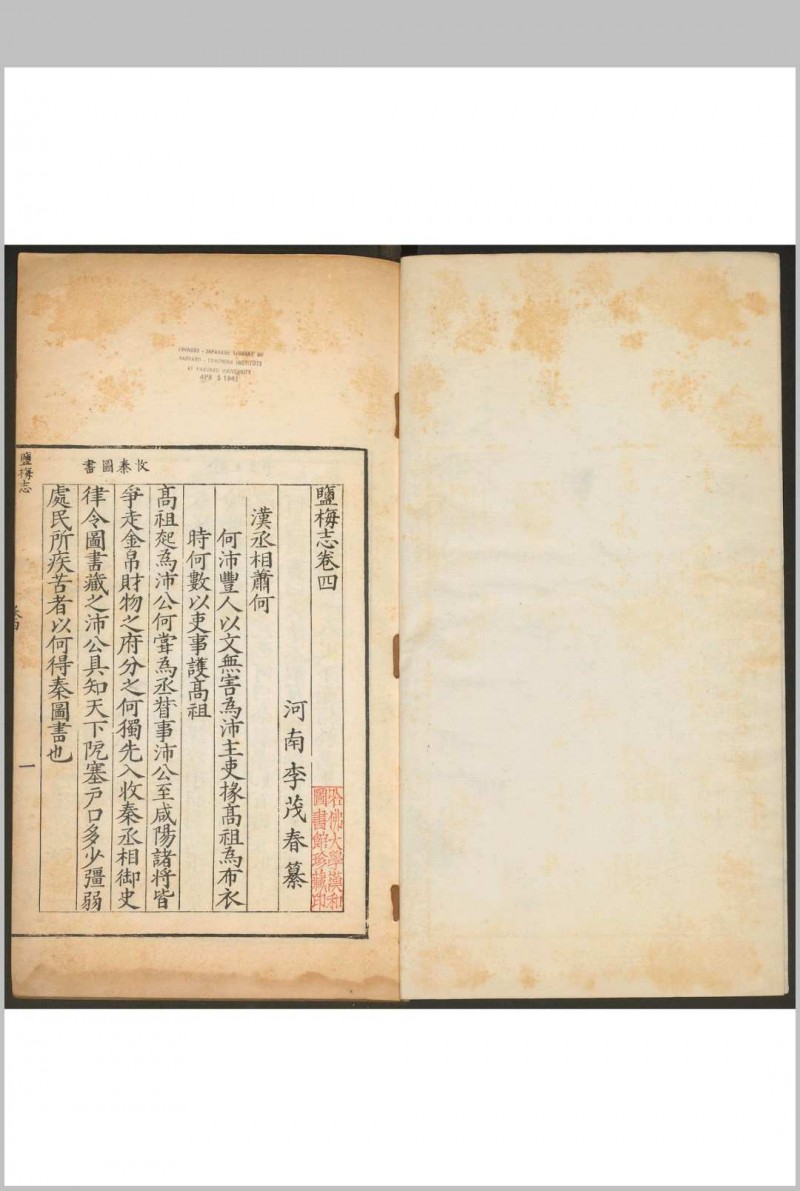 CHINESE - JAPANESE LIBRARY OF
HARVARD - YENCHING INSTITUTE
AT HARVARD UNIVERSITY
APR 5 1941
收秦圖書
鹽梅志卷四
河南李茂春纂
哈佛大學漢和
圖書館珍藏印
漢丞相蕭何
何沛豐人以文無害為沛主吏掾高祖為布衣
時何數以吏事護高祖
高祖起為沛公何嘗為丞督事沛公至咸陽諸將皆
爭走金帛財物之府分之何獨先入收秦丞相御史
律令圖書藏之沛公具知天下阨塞戶口多少彊弱
處民所疾苦者以何得秦圖書也
鹽梅志
卷四
一